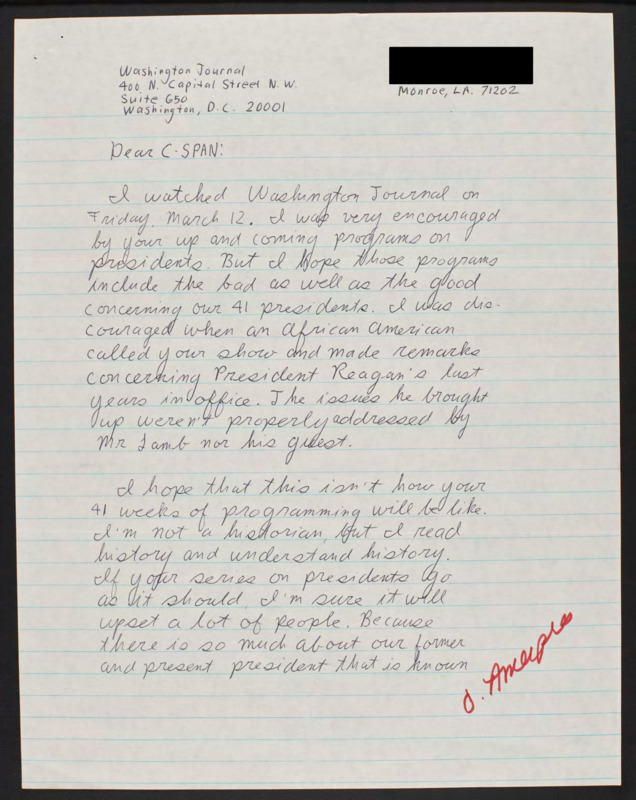 Washington Journal
400 N. Capital Street N.W.
Suite 650
Washington, D.C. 20001
Monroe, LA. 71202
Dear C-SPAN:
I watched Washington Journal on
Friday, March 12. I was very encouraged
by your up and coming programs on
presidents. But I hope those programs
include the bad as well as the good
concerning our 41 presidents. I was dis-
couraged when an African American
called your show and made remarks
concerning President Reagan's last
years in office. The issues he brought
up weren't properly addressed by
Mr Lamb nor his guest.
I hope that this isn't how your
41 weeks of programming will be like.
I'm not a historian, but I read
history and understand history.
If your series on presidents go
as it should, I'm sure it will
upset a lot of people. Because
there is so much about our former
and present president that is known